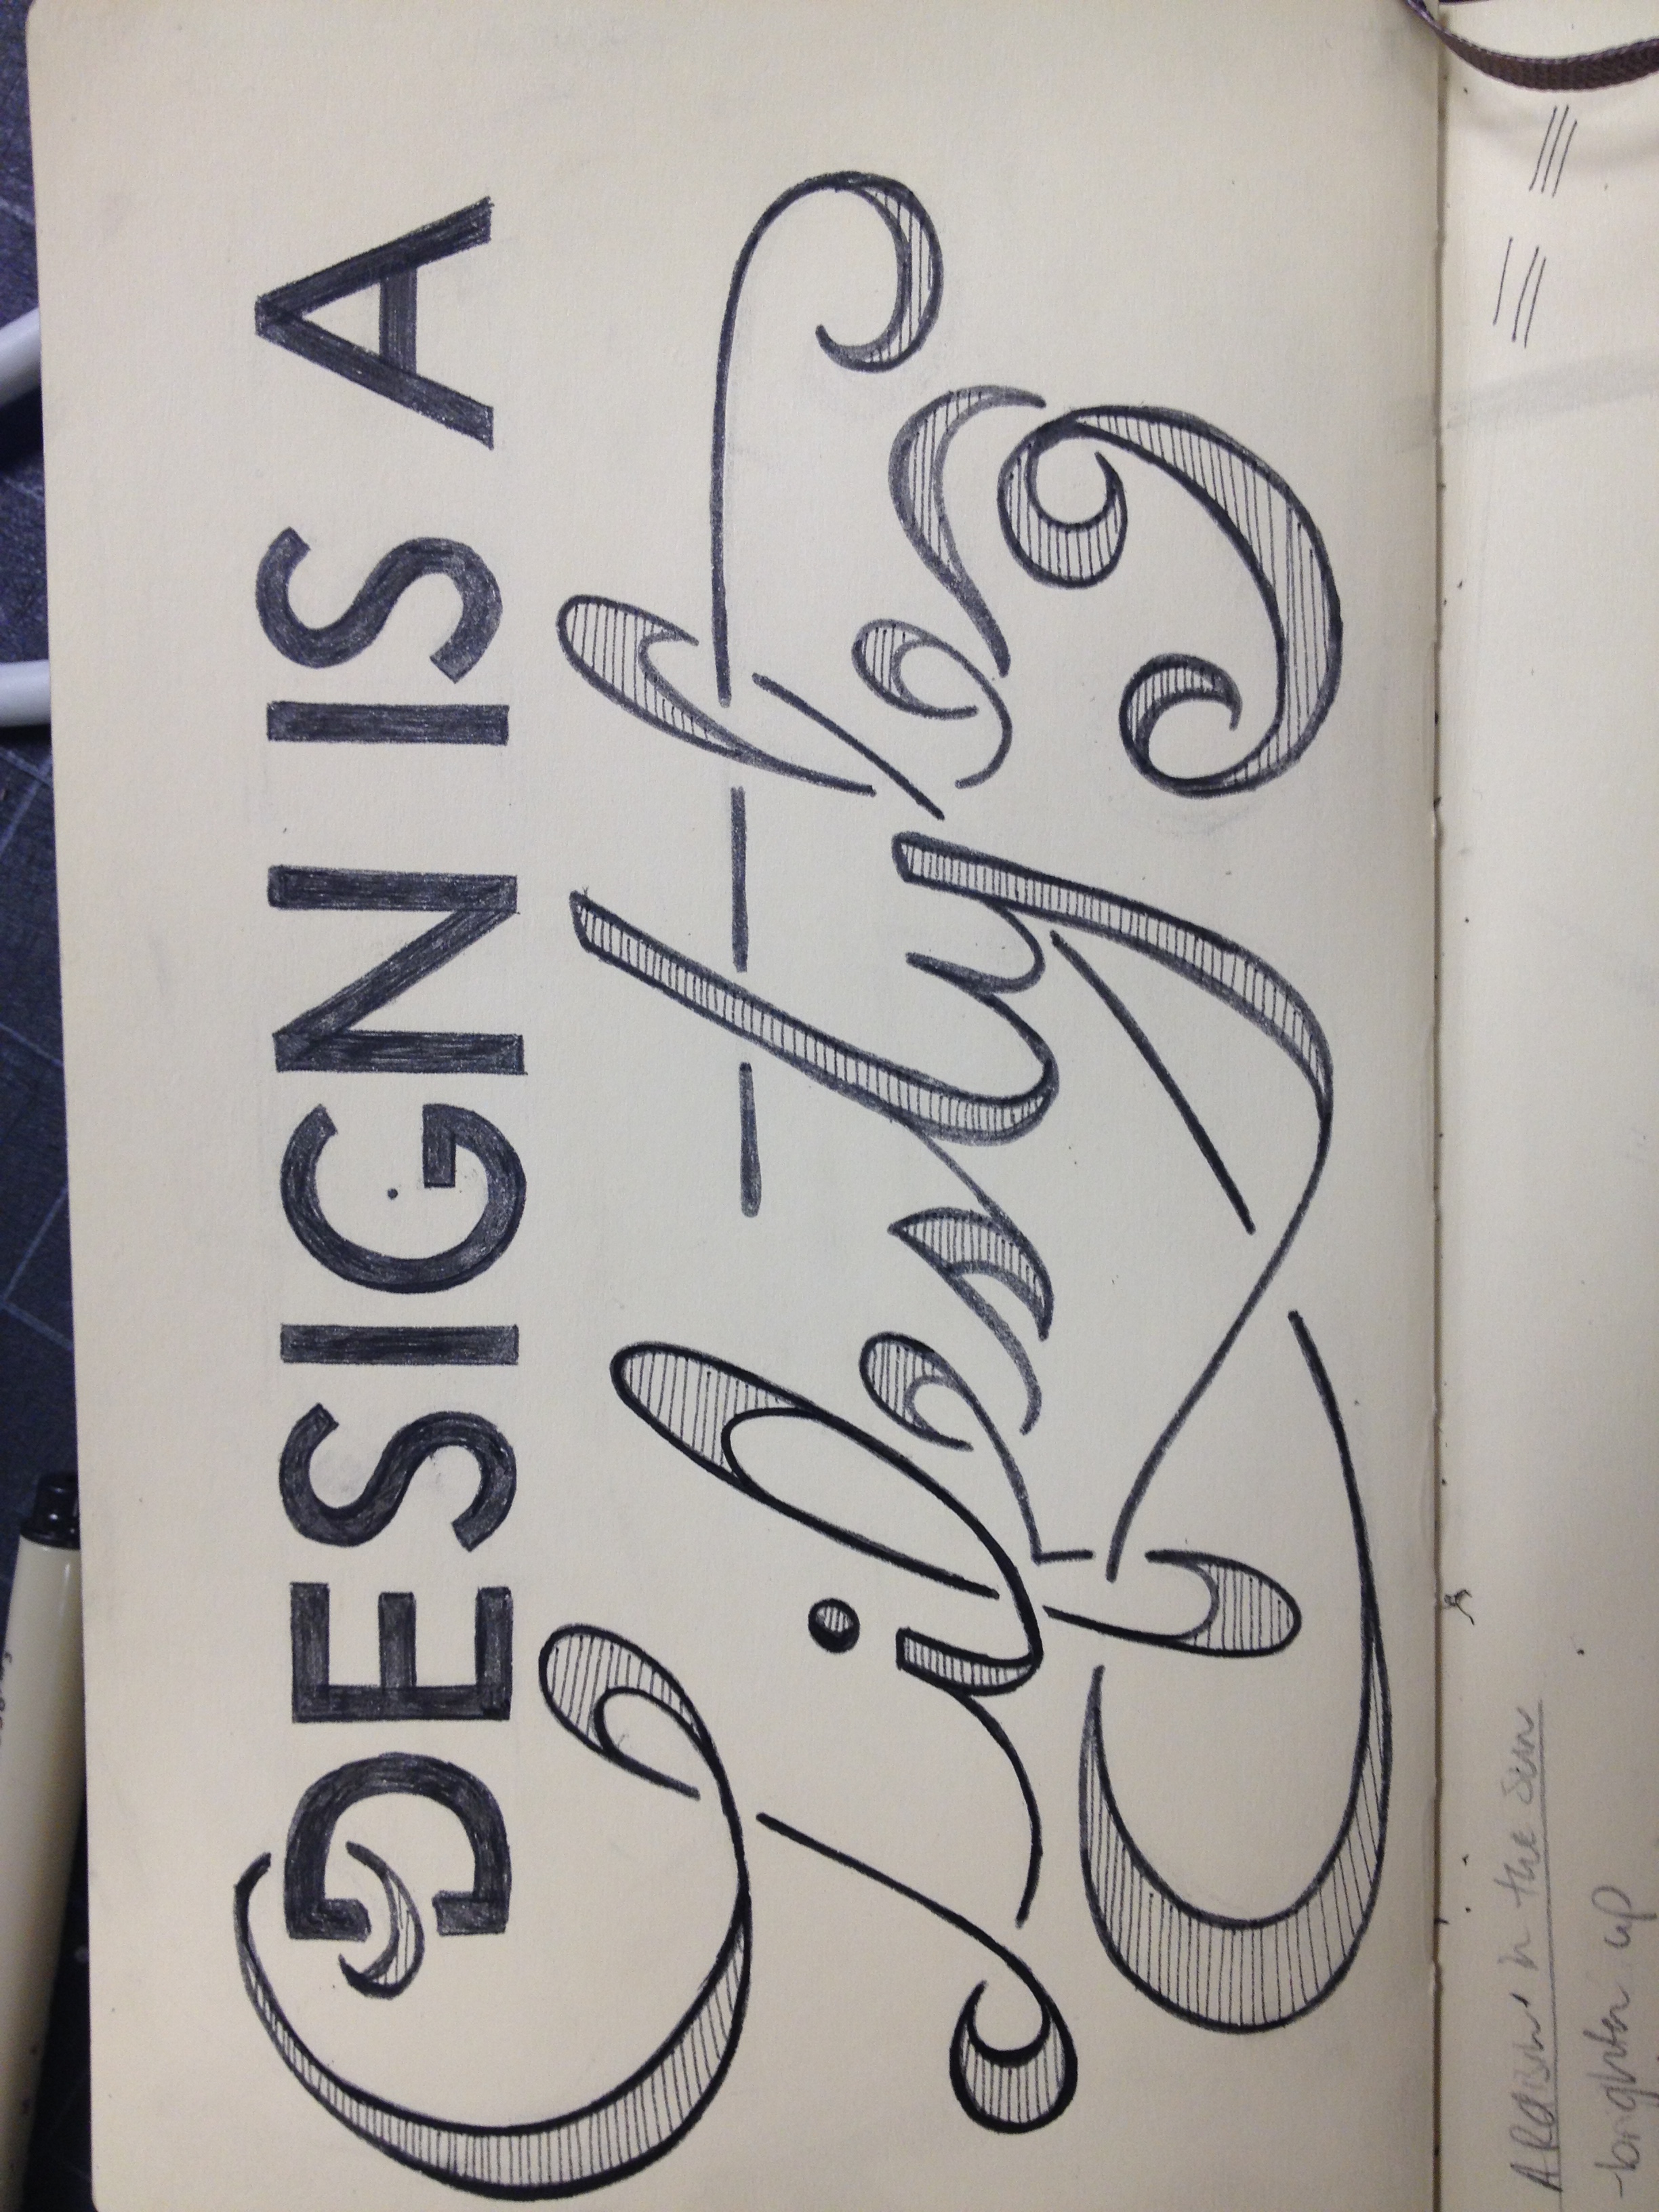 DESIGN IS A
Lifestyle
A Raisin' in the Sun
-brighten up